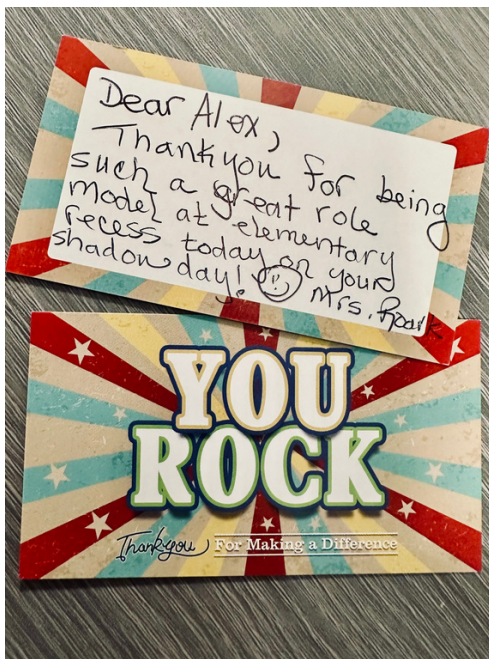 Dear Alex,
Thank you for being
such a great role
model at elementary
recess today on your
shadow day! Mrs. Roark
YOU
ROCK
Thank you For Making a Difference